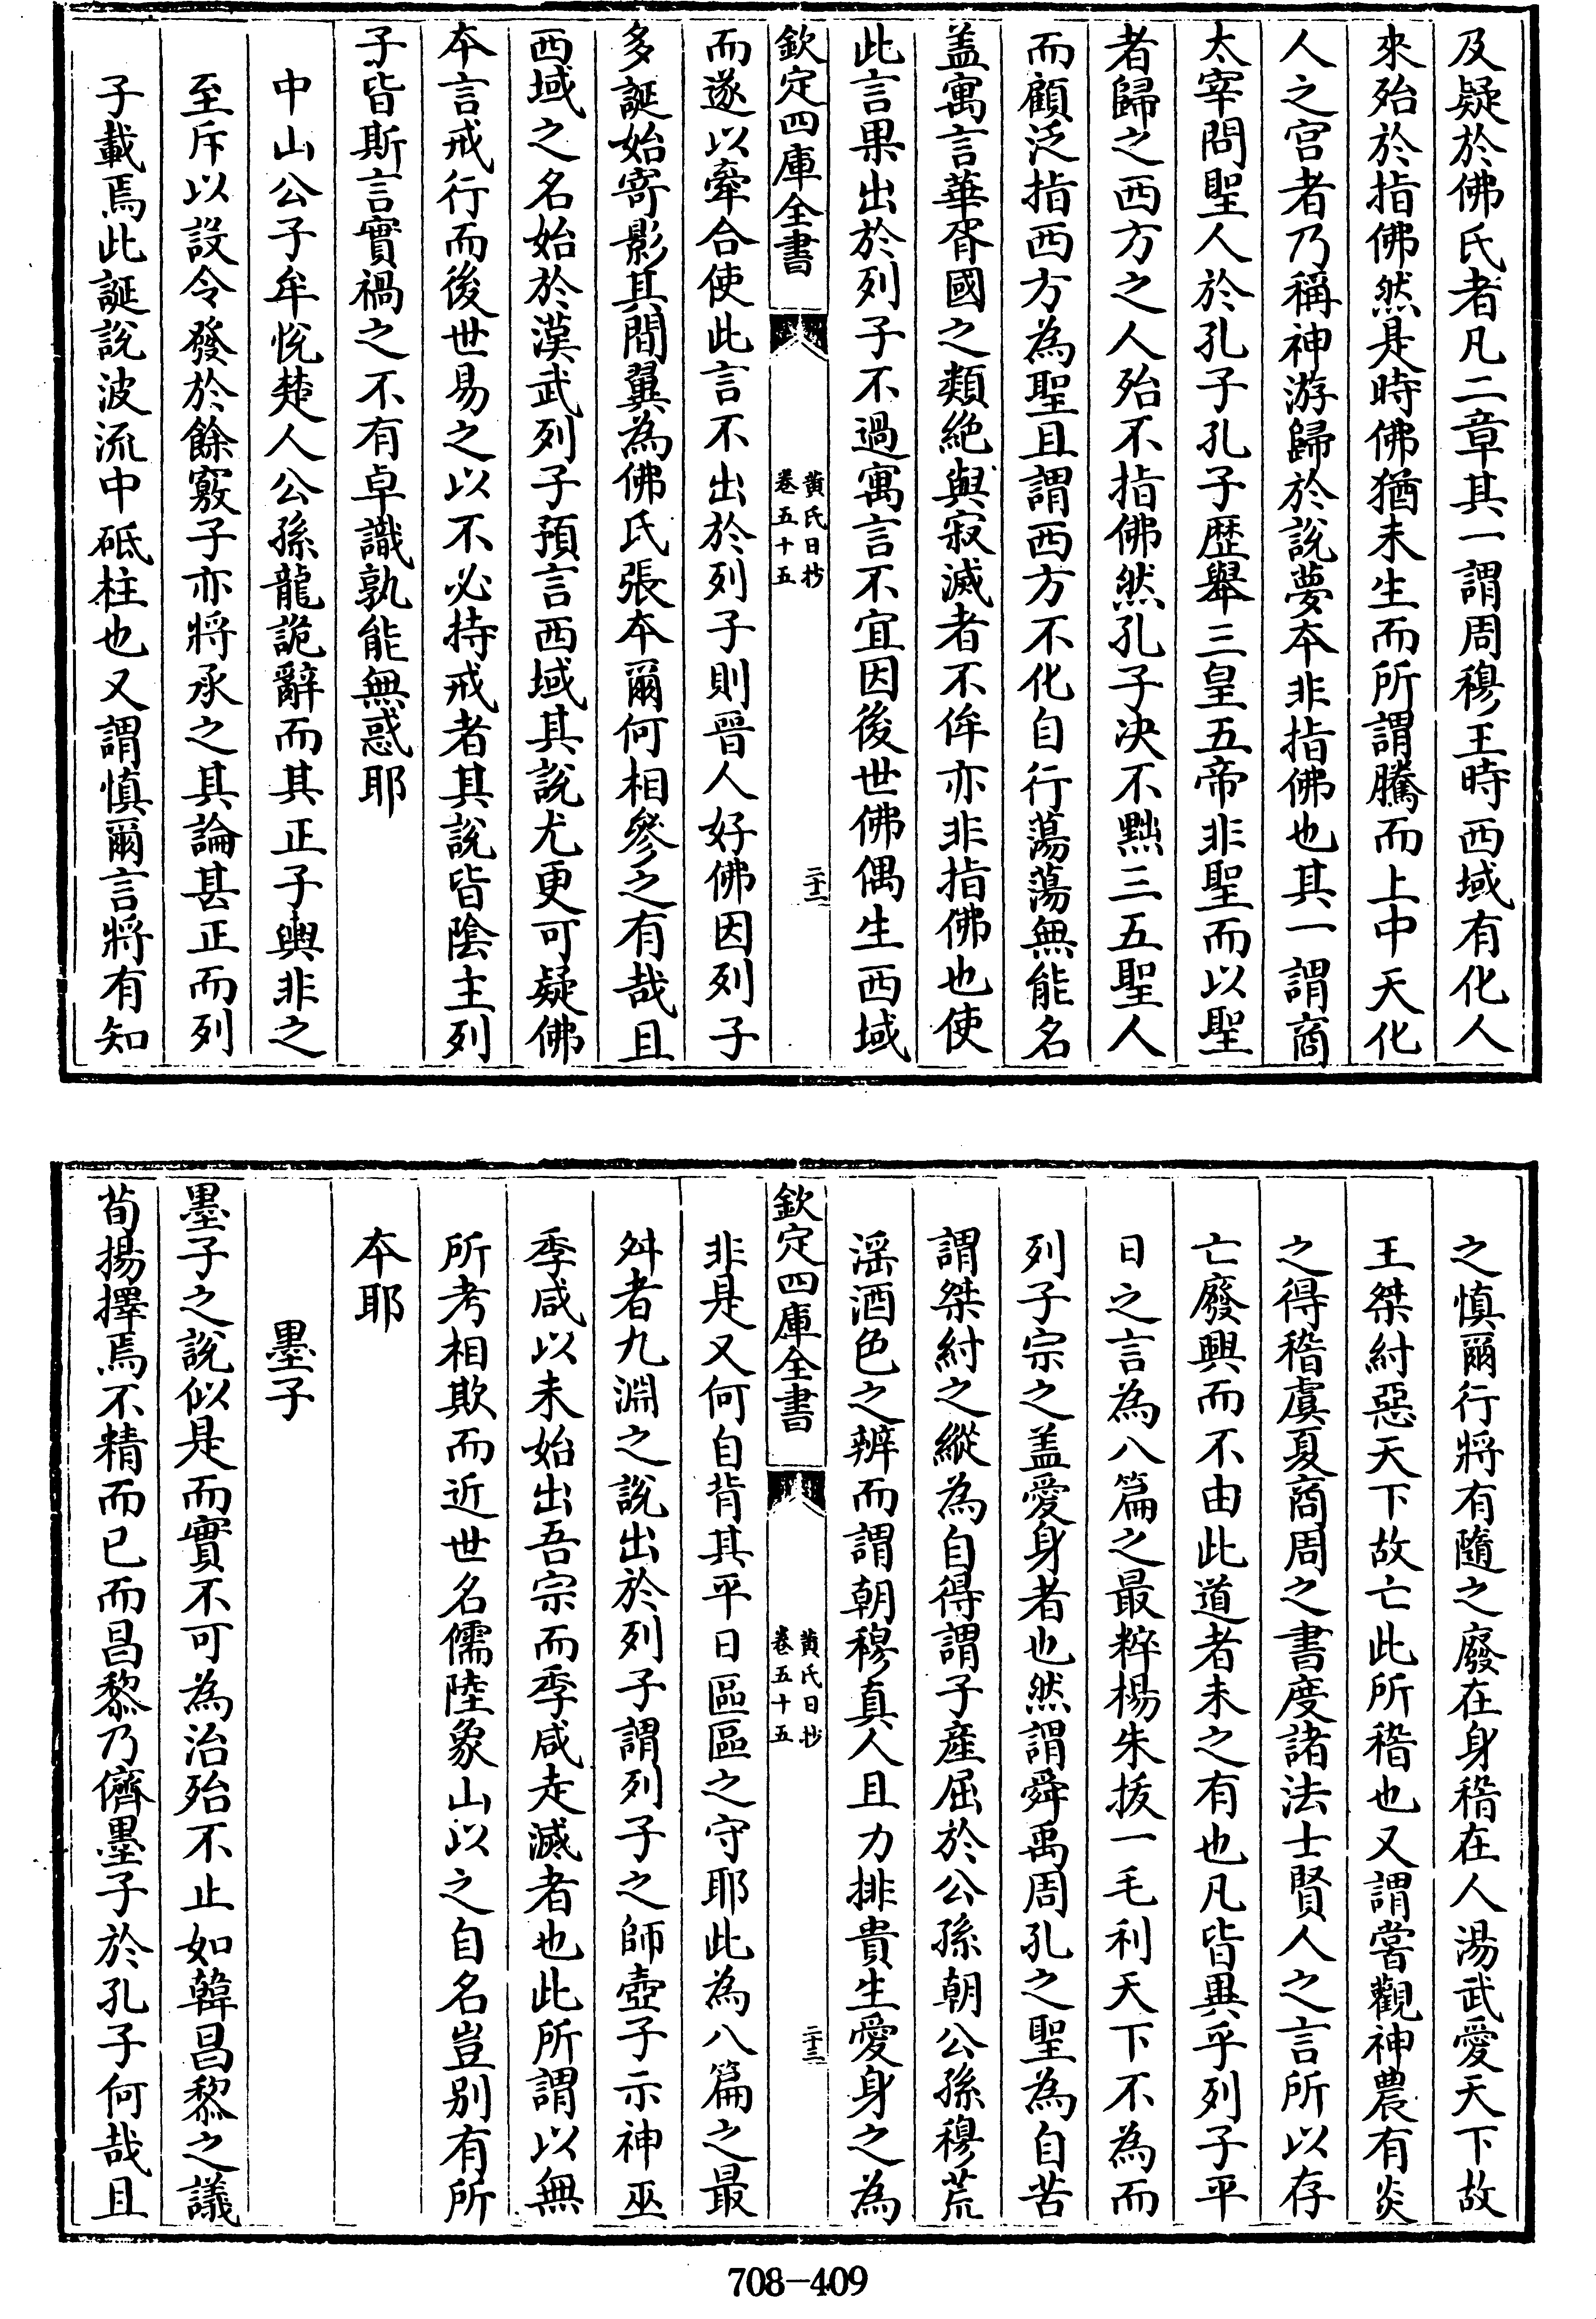 及疑於佛氏者凡二章其一謂周穆王時西域有化人
來殆於指佛然是時佛猶未生而所謂騰而上中天化
人之宫者乃稱神游歸於說夢本非指佛也其一謂商
太宰問聖人於孔子孔子歴舉三皇五帝非聖而以聖
者歸之西方之人殆不指佛然孔子决不黜三五聖人
而顧泛指西方為聖且謂西方不化自行蕩蕩無能名
盖寓言華胥國之類絶與寂滅者不侔亦非指佛也使
此言果出於列子不過寓言不宜因後世佛偶生西域
欽定四庫全書
黄氏日抄
卷五十五
二十二
而遂以牽合使此言不出於列子則晉人好佛因列子
多誕始寄影其間冀為佛氏張本爾何相參之有哉且
西域之名始於漢武列子預言西域其說尤更可疑佛
本言戒行而後世易之以不必持戒者其說皆陰主列
子皆斯言實禍之不有卓識孰能無惑耶
中山公子牟悅楚人公孫龍詭辭而其正子輿非之
至斥以設令發於餘竅子亦將承之其論甚正而列
子載焉此誕說波流中砥柱也又謂慎爾言將有知
之慎爾行將有隨之廢在身稽在人湯武愛天下故
王桀紂惡天下故亡此所稽也又謂嘗觀神農有炎
之得稽虞夏商周之書度諸法士賢人之言所以存
亡廢興而不由此道者未之有也凡皆異乎列子平
日之言為八篇之最粹楊朱拔一毛利天下不為而
列子宗之盖愛身者也然謂舜禹周孔之聖為自苦
謂桀紂之縱為自得謂子産屈於公孫朝公孫穆荒
滛酒色之辨而謂朝穆真人且力排貴生愛身之為
欽定四庫全書
黄氏日抄
卷五十五
二十三
非是又何自背其平日區區之守耶此為八篇之最
舛者九淵之說出於列子謂列子之師壺子示神巫
季咸以未始出吾宗而季咸走滅者也此所謂以無
所考相欺而近世名儒陸象山以之自名豈别有所
本耶
墨子
墨子之說似是而實不可為治殆不止如韓昌黎之議
荀揚擇焉不精而已而昌黎乃儕墨子於孔子何哉且
708-409